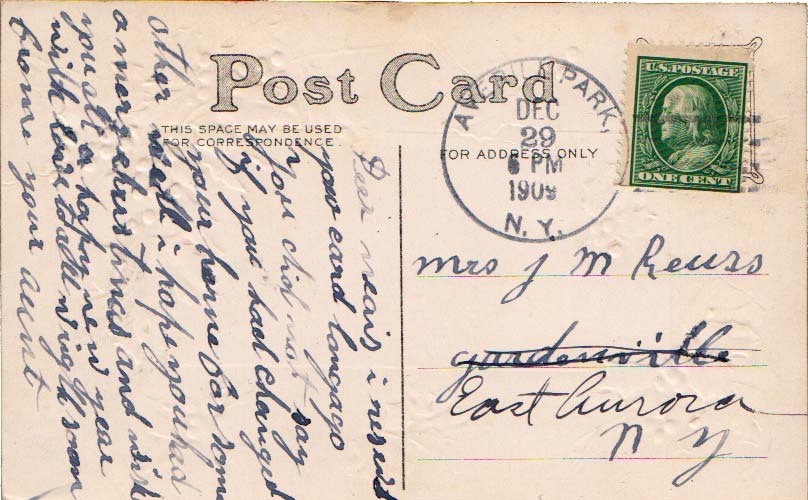 Post Card
THIS SPACE MAY BE USED
FOR CORRESPONDENCE.
FOR ADDRESS ONLY
U.S. POSTAGE
ONE CENT
PARK,
DEC
29
PM
1909
N. Y.
Mrs J M Reuss
gardenville
East Aurora
N Y
Dear i
your card long ago
you did not say
if you had changed
your home for some
other well i hope you had
a mery cristmas and wish
you all a hapy new year
with love to all soon
from your aunt